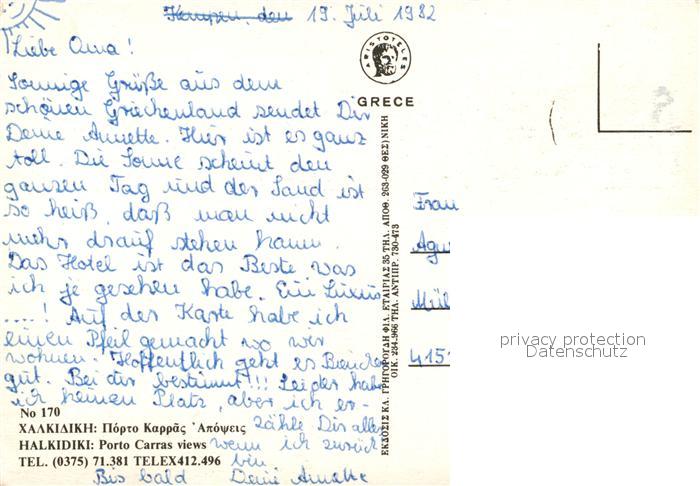 Kempen, den 19. Juli 1982
Liebe Oma!
Sonnige Grüße aus dem
schönen Griechenland sendet Dir
Deine Annette. Hier ist es ganz
toll. Die Sonne scheint den
ganzen Tag und der Sand ist
so heiß, daß man nicht
mehr drauf stehen kann.
Das Hotel ist das Beste was
ich je gesehen habe. Ein Luxus
....! Auf der Karte habe ich
einen Pfeil gemacht wo wir
wohnen. Hoffentlich geht es
gut. Bei dir bestimmt!!! Leider habe
ich keinen Platz, aber ich er-
zähle Dir alles
wenn ich zurück
bin
Bis bald Deine Annette
No 170
ΧΑΛΚΙΔΙΚΗ: Πόρτο Καρρᾶς Ἀπόψεις
HALKIDIKI: Porto Carras views
TEL. (0375) 71.381 TELEX412.496
ARISTOTELES
GRECE
ΕΚΔΟΣΙΣ ΚΛ. ΓΡΗΓΟΡΟΥΔΗ ΦΙΛ. ΕΤΑΙΡΙΑΣ 35 ΤΗΛ. ΑΠΟΘ. 263-029 ΘΕΣ)ΝΙΚΗ
ΟΙΚ. 234-966 ΤΗΛ. ΑΝΤΙΠΡ. 730-473
Frau
Agn
Mül
415
privacy protection
Datenschutz